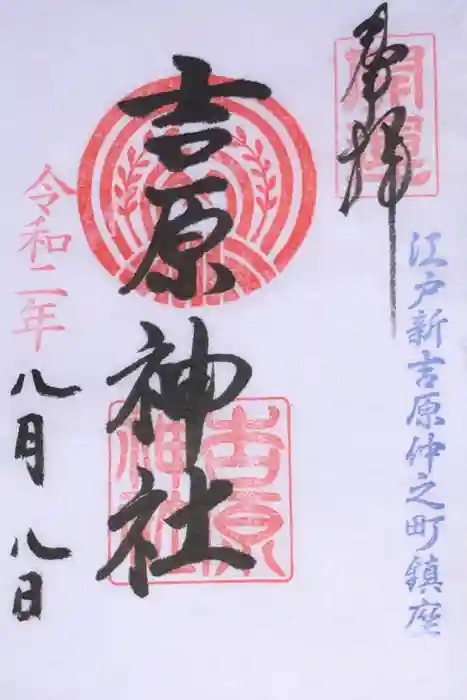 奉拝
開運
江戸新吉原仲之町鎮座
吉原神社
吉原
神社
令和二年
八月八日